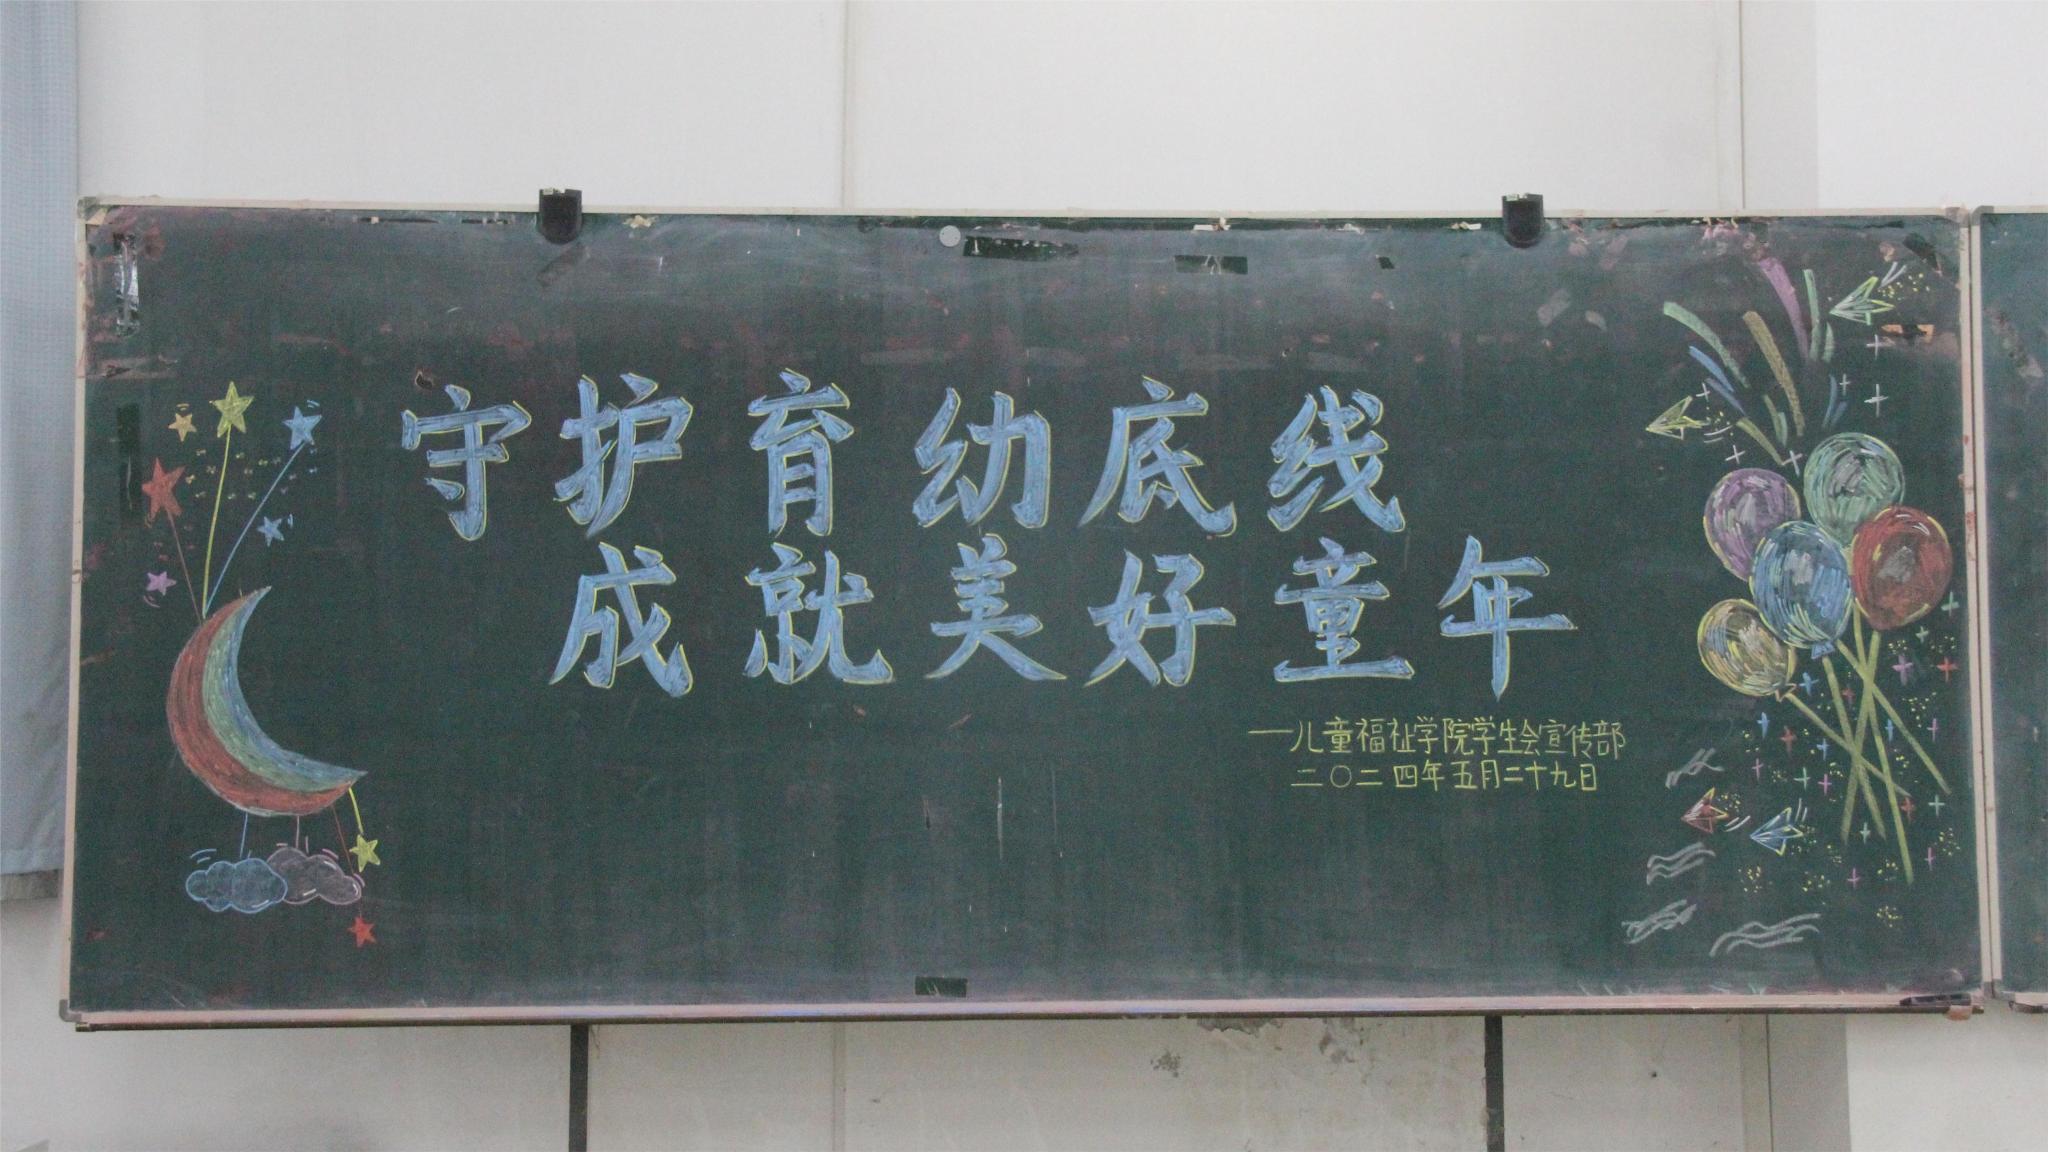 守护育幼底线
成就美好童年
—儿童福祉学院学生会宣传部
二〇二四年五月二十九日